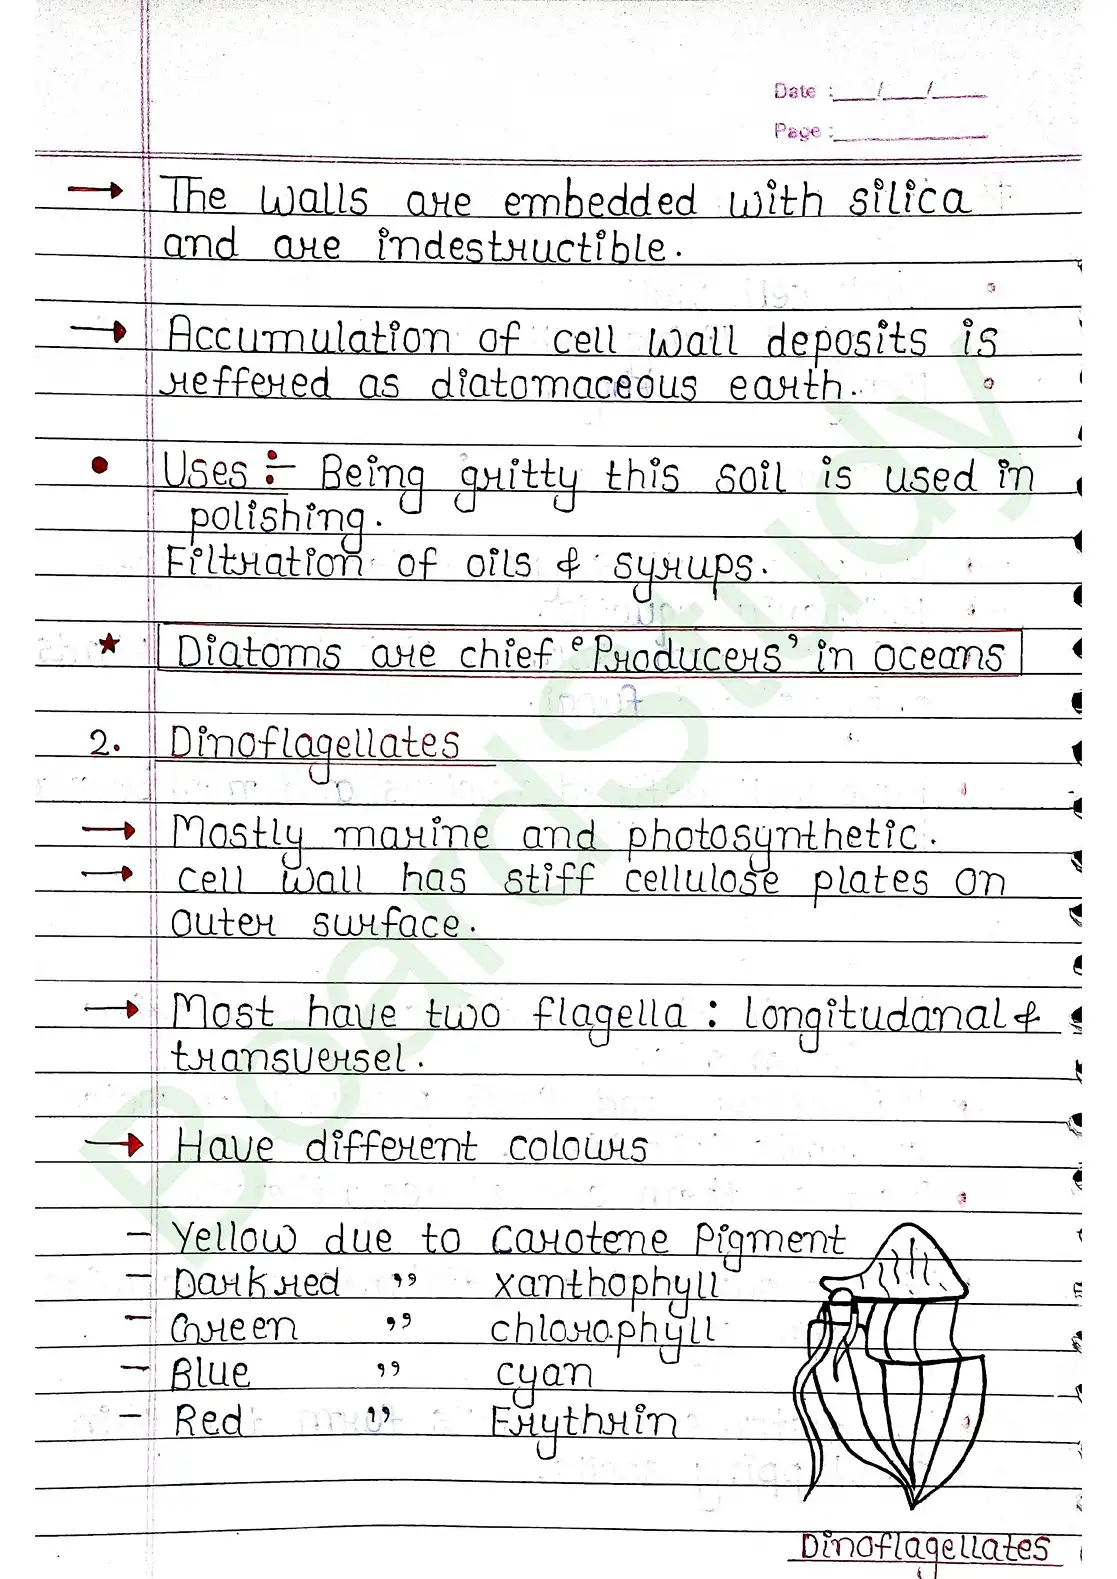 Date : __/__/__
Page :
→ The walls are embedded with silica
and are indestructible.
→ Accumulation of cell wall deposits is
reffered as diatomaceous earth.
• Uses :- Being gritty this soil is used in
polishing.
Filtration of oils & syrups.
★ Diatoms are chief ‘Producers’ in oceans
2. Dinoflagellates
→ Mostly marine and photosynthetic.
→ cell wall has stiff cellulose plates on
outer surface.
→ Most have two flagella : longitudanal &
transversel.
→ Have different colours
- Yellow due to carotene Pigment
- Dark red ,, xanthophyll
- Green ,, chlorophyll
- Blue ,, cyan
- Red ,, Erythrin
Dinoflagellates
BoardStudy